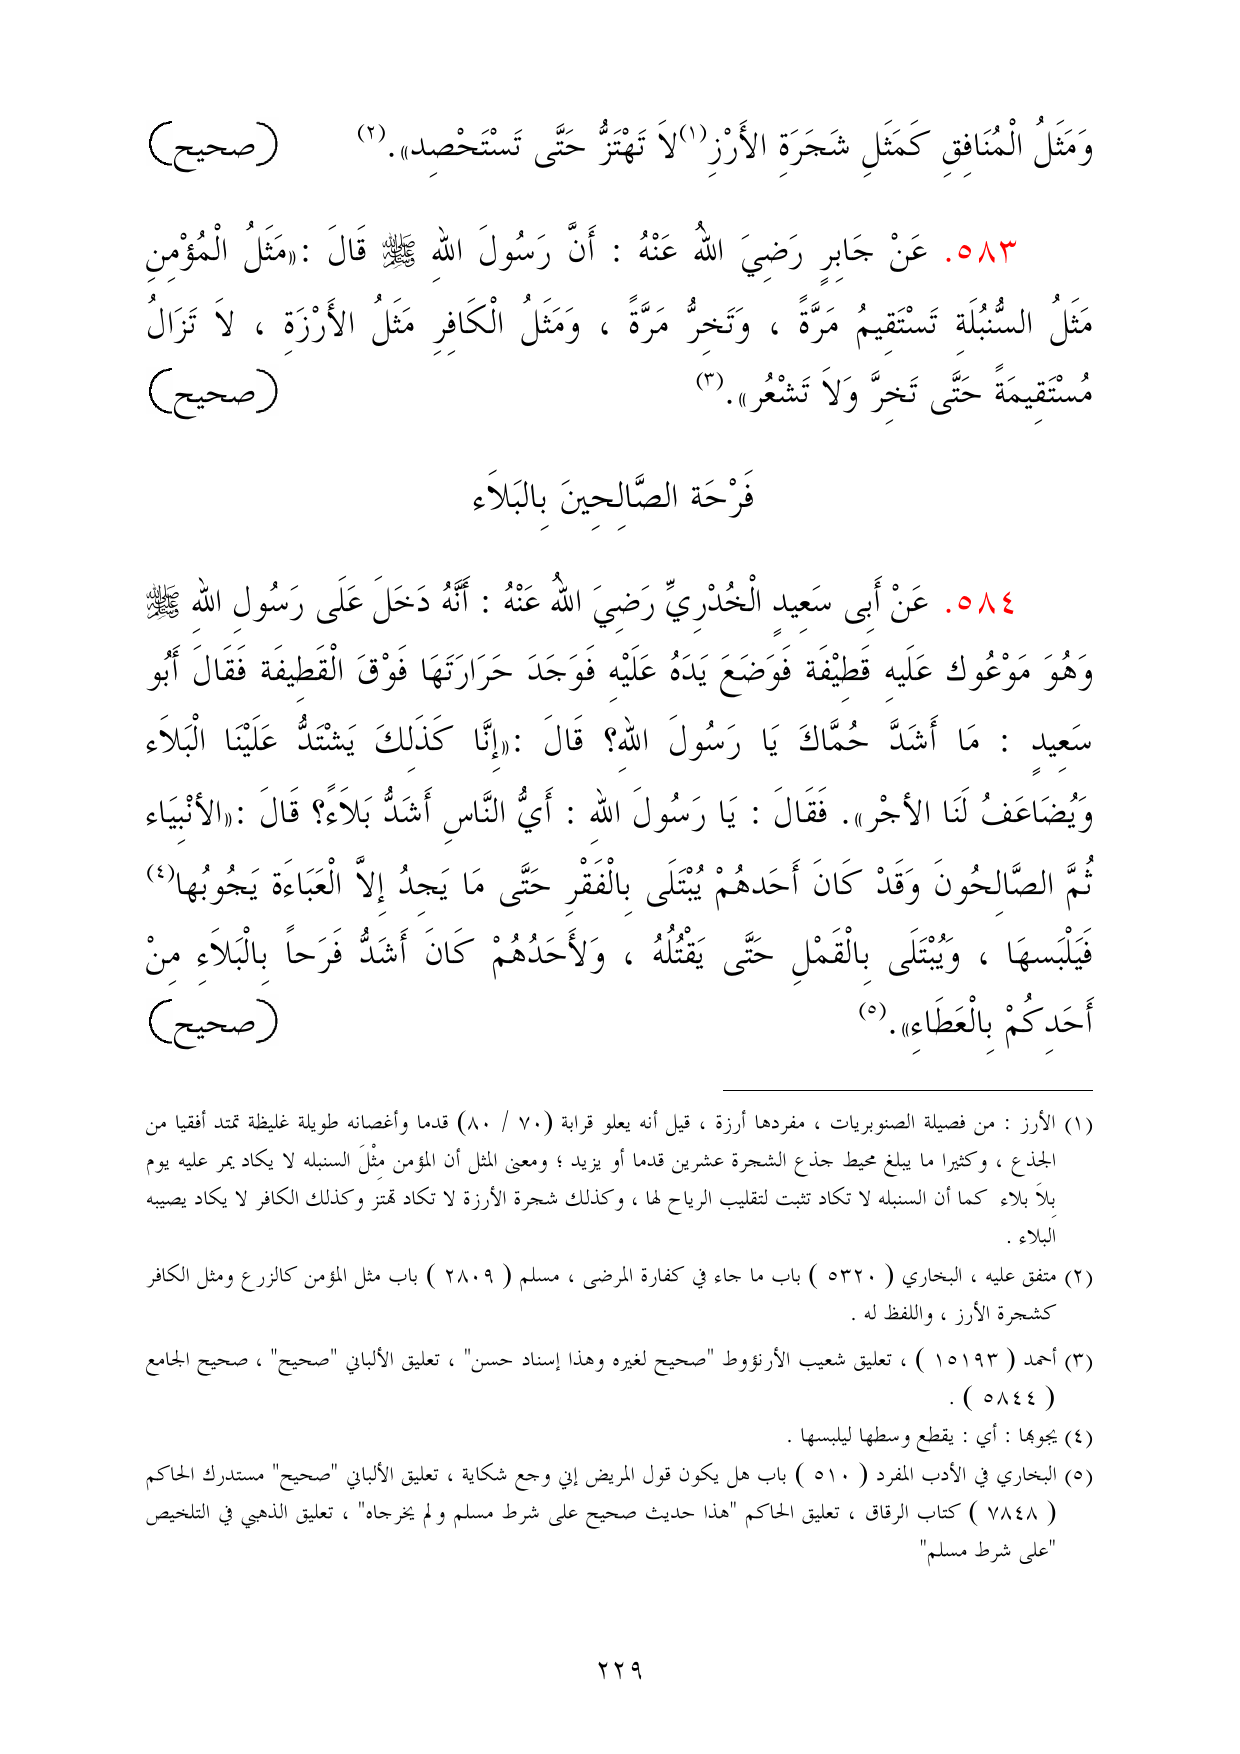 وَمَثَلُ الْمُنَافِقِ كَمَثَلِ شَجَرَةِ الأَرْزِ(١)لاَ تَهْتَزُّ حَتَّى تَسْتَحْصِد».(٢) (صحيح)
٥٨٣. عَنْ جَابِرٍ رَضِيَ اللهُ عَنْهُ : أَنَّ رَسُولَ اللهِ ﷺ قَالَ :«مَثَلُ الْمُؤْمِنِ
مَثَلُ السُّنْبُلَةِ تَسْتَقِيمُ مَرَّةً ، وَتَخِرُّ مَرَّةً ، وَمَثَلُ الْكَافِرِ مَثَلُ الأَرْزَةِ ، لاَ تَزَالُ
مُسْتَقِيمَةً حَتَّى تَخِرَّ وَلاَ تَشْعُر».(٣) (صحيح)
فَرْحَة الصَّالِحِينَ بِالبَلاَءِ
٥٨٤. عَنْ أَبِى سَعِيدٍ الْخُدْرِيِّ رَضِيَ اللهُ عَنْهُ : أَنَّهُ دَخَلَ عَلَى رَسُولِ اللهِ ﷺ
وَهُوَ مَوْعُوك عَلَيهِ قَطِيْفَة فَوَضَعَ يَدَهُ عَلَيْهِ فَوَجَدَ حَرَارَتَهَا فَوْقَ الْقَطِيفَة فَقَالَ أَبُو
سَعِيدٍ : مَا أَشَدَّ حُمَّاكَ يَا رَسُولَ اللهِ؟ قَالَ :«إِنَّا كَذَلِكَ يَشْتَدُّ عَلَيْنَا الْبَلاَء
وَيُضَاعَفُ لَنَا الأجْر». فَقَالَ : يَا رَسُولَ اللهِ : أَيُّ النَّاسِ أَشَدُّ بَلاَءً؟ قَالَ :«الأنْبِيَاء
ثُمَّ الصَّالِحُونَ وَقَدْ كَانَ أَحَدهُمْ يُبْتَلَى بِالْفَقْرِ حَتَّى مَا يَجِدُ إِلاَّ الْعَبَاءَة يَجُوبُها(٤)
فَيَلْبَسهَا ، وَيُبْتَلَى بِالْقَمْلِ حَتَّى يَقْتُلُهُ ، وَلأَحَدُهُمْ كَانَ أَشَدُّ فَرَحاً بِالْبَلاَءِ مِنْ
أَحَدِكُمْ بِالْعَطَاءِ».(٥) (صحيح)
(١) الأرز : من فصيلة الصنوبريات ، مفردها أرزة ، قيل أنه يعلو قرابة (٧٠ / ٨٠) قدما وأغصانه طويلة غليظة تمتد أفقيا من
الجذع ، وكثيرا ما يبلغ محيط جذع الشجرة عشرين قدما أو يزيد ؛ ومعنى المثل أن المؤمن مِثْلَ السنبله لا يكاد يمر عليه يوم
بِلاَ بلاء كما أن السنبله لا تكاد تثبت لتقليب الرياح لها ، وكذلك شجرة الأرزة لا تكاد تهتز وكذلك الكافر لا يكاد يصيبه
البلاء .
(٢) متفق عليه ، البخاري ( ٥٣٢٠ ) باب ما جاء في كفارة المرضى ، مسلم ( ٢٨٠٩ ) باب مثل المؤمن كالزرع ومثل الكافر
كشجرة الأرز ، واللفظ له .
(٣) أحمد ( ١٥١٩٣ ) ، تعليق شعيب الأرنؤوط "صحيح لغيره وهذا إسناد حسن" ، تعليق الألباني "صحيح" ، صحيح الجامع
( ٥٨٤٤ ) .
(٤) يجوبها : أي : يقطع وسطها ليلبسها .
(٥) البخاري في الأدب المفرد ( ٥١٠ ) باب هل يكون قول المريض إني وجع شكاية ، تعليق الألباني "صحيح" مستدرك الحاكم
( ٧٨٤٨ ) كتاب الرقاق ، تعليق الحاكم "هذا حديث صحيح على شرط مسلم و لم يخرجاه" ، تعليق الذهبي في التلخيص
"على شرط مسلم"
٢٢٩